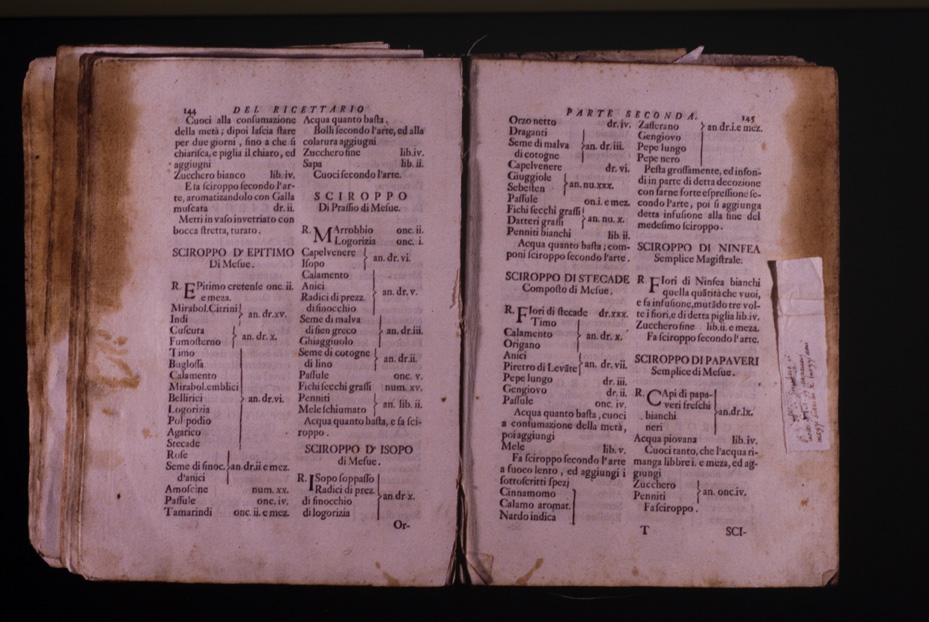 144 DEL RICETTARIO
Cuoci alla consumazione
della metà; dipoi lascia stare
per due giorni, fino a che si
chiarisca, e piglia il chiaro, ed
aggiugni
Zucchero bianco lib.iv.
E fa sciroppo secondo l'ar-
te, aromatizandolo con Galla
muscata dr.ii.
Metti in vaso invetriato con
bocca stretta, turato.
SCIROPPO D'EPITIMO
Di Mesue.
R. EPitimo cretense onc.ii.
e meza.
Mirabol.Citrini
Indi an.dr.xv.
Cuscuta
Fumosterno an.dr.x.
Timo
Buglossa
Calamento
Mirabol.emblici
Bellirici an.dr.vi.
Logorizia
Polipodio
Agarico
Stecade
Rose
Seme di finoc. an.dr.ii e mez.
d'anici
Amoscine num.xx.
Passule onc.iv.
Tamarindi onc.ii.e mez.
Acqua quanto basta.
Bolli secondo l'arte, ed alla
colatura aggiugni
Zucchero fine lib.iv.
Sapa lib.ii.
Cuoci secondo l'arte.
SCIROPPO
Di Prassio di Mesue.
R. MArrobbio onc.ii.
Logorizia onc.i.
Capelvenere
Isopo an.dr.vi.
Calamento
Anici
Radici di prezz. an.dr.v.
di finocchio
Seme di malva
di fien greco an.dr.iii.
Ghiaggiuolo
Seme di cotogne
di lino an.dr.ii.
Passule onc.v.
Fichi secchi grassi num.xv.
Penniti
Mele schiumato an.lib.ii.
Acqua quanto basta, e fa sci-
roppo.
SCIROPPO D'ISOPO
di Mesue.
R. ISopo soppasso
Radici di prez.
di finocchio an.dr.x.
di logorizia
Or-
PARTE SECONDA. 145
Orzo netto dr.iv.
Draganti
Seme di malva an.dr.iii.
di cotogne
Capelvenere dr.vi.
Giuggiole
Sebesten an.nu.xxx.
Passule on.i.e mez.
Fichi secchi grassi
Datteri grassi an.nu.x.
Penniti bianchi lib.ii.
Acqua quanto basta; com-
poni sciroppo secondo l'arte.
SCIROPPO DI STECADE
Composto di Mesue.
R. FIori di stecade dr.xxx.
Timo
Calamento an.dr.x.
Origano
Anici
Piretro di Levãte an.dr.vii.
Pepe lungo dr.iii.
Gengiovo dr.ii.
Passule onc.iv.
Acqua quanto basta, cuoci
a consumazione della metà,
poi aggiungi
Mele lib.v.
Fa sciroppo secondo l'arte
a fuoco lento, ed aggiungi i
sottoscritti spezj
Cinnamomo
Calamo aromat.
Nardo indica
T
Zafferano
Gengiovo an dr.i.e mez.
Pepe lungo
Pepe nero
Pesta grossamente, ed infon-
di in parte di detta decozione
con farne forte espressione se-
condo l'arte, poi si aggiunga
detta infusione alla fine del
medesimo sciroppo.
SCIROPPO DI NINFEA
Semplice Magistrale.
R FIori di Ninfea bianchi
quella quãtità che vuoi,
e fa infusione, mutãdo tre vol-
te i fiori, e di detta piglia lib.iv.
Zucchero fine lib.ii.e meza.
Fa sciroppo secondo l'arte.
SCIROPPO DI PAPAVERI
Semplice di Mesue.
R. CApi di papa-
veri freschi
bianchi an.dr.lx.
neri
Acqua piovana lib.iv.
Cuoci tanto, che l'acqua ri-
manga libbre i. e meza, ed ag-
giungi
Zucchero
Penniti an.onc.iv.
Fa sciroppo.
SCI-